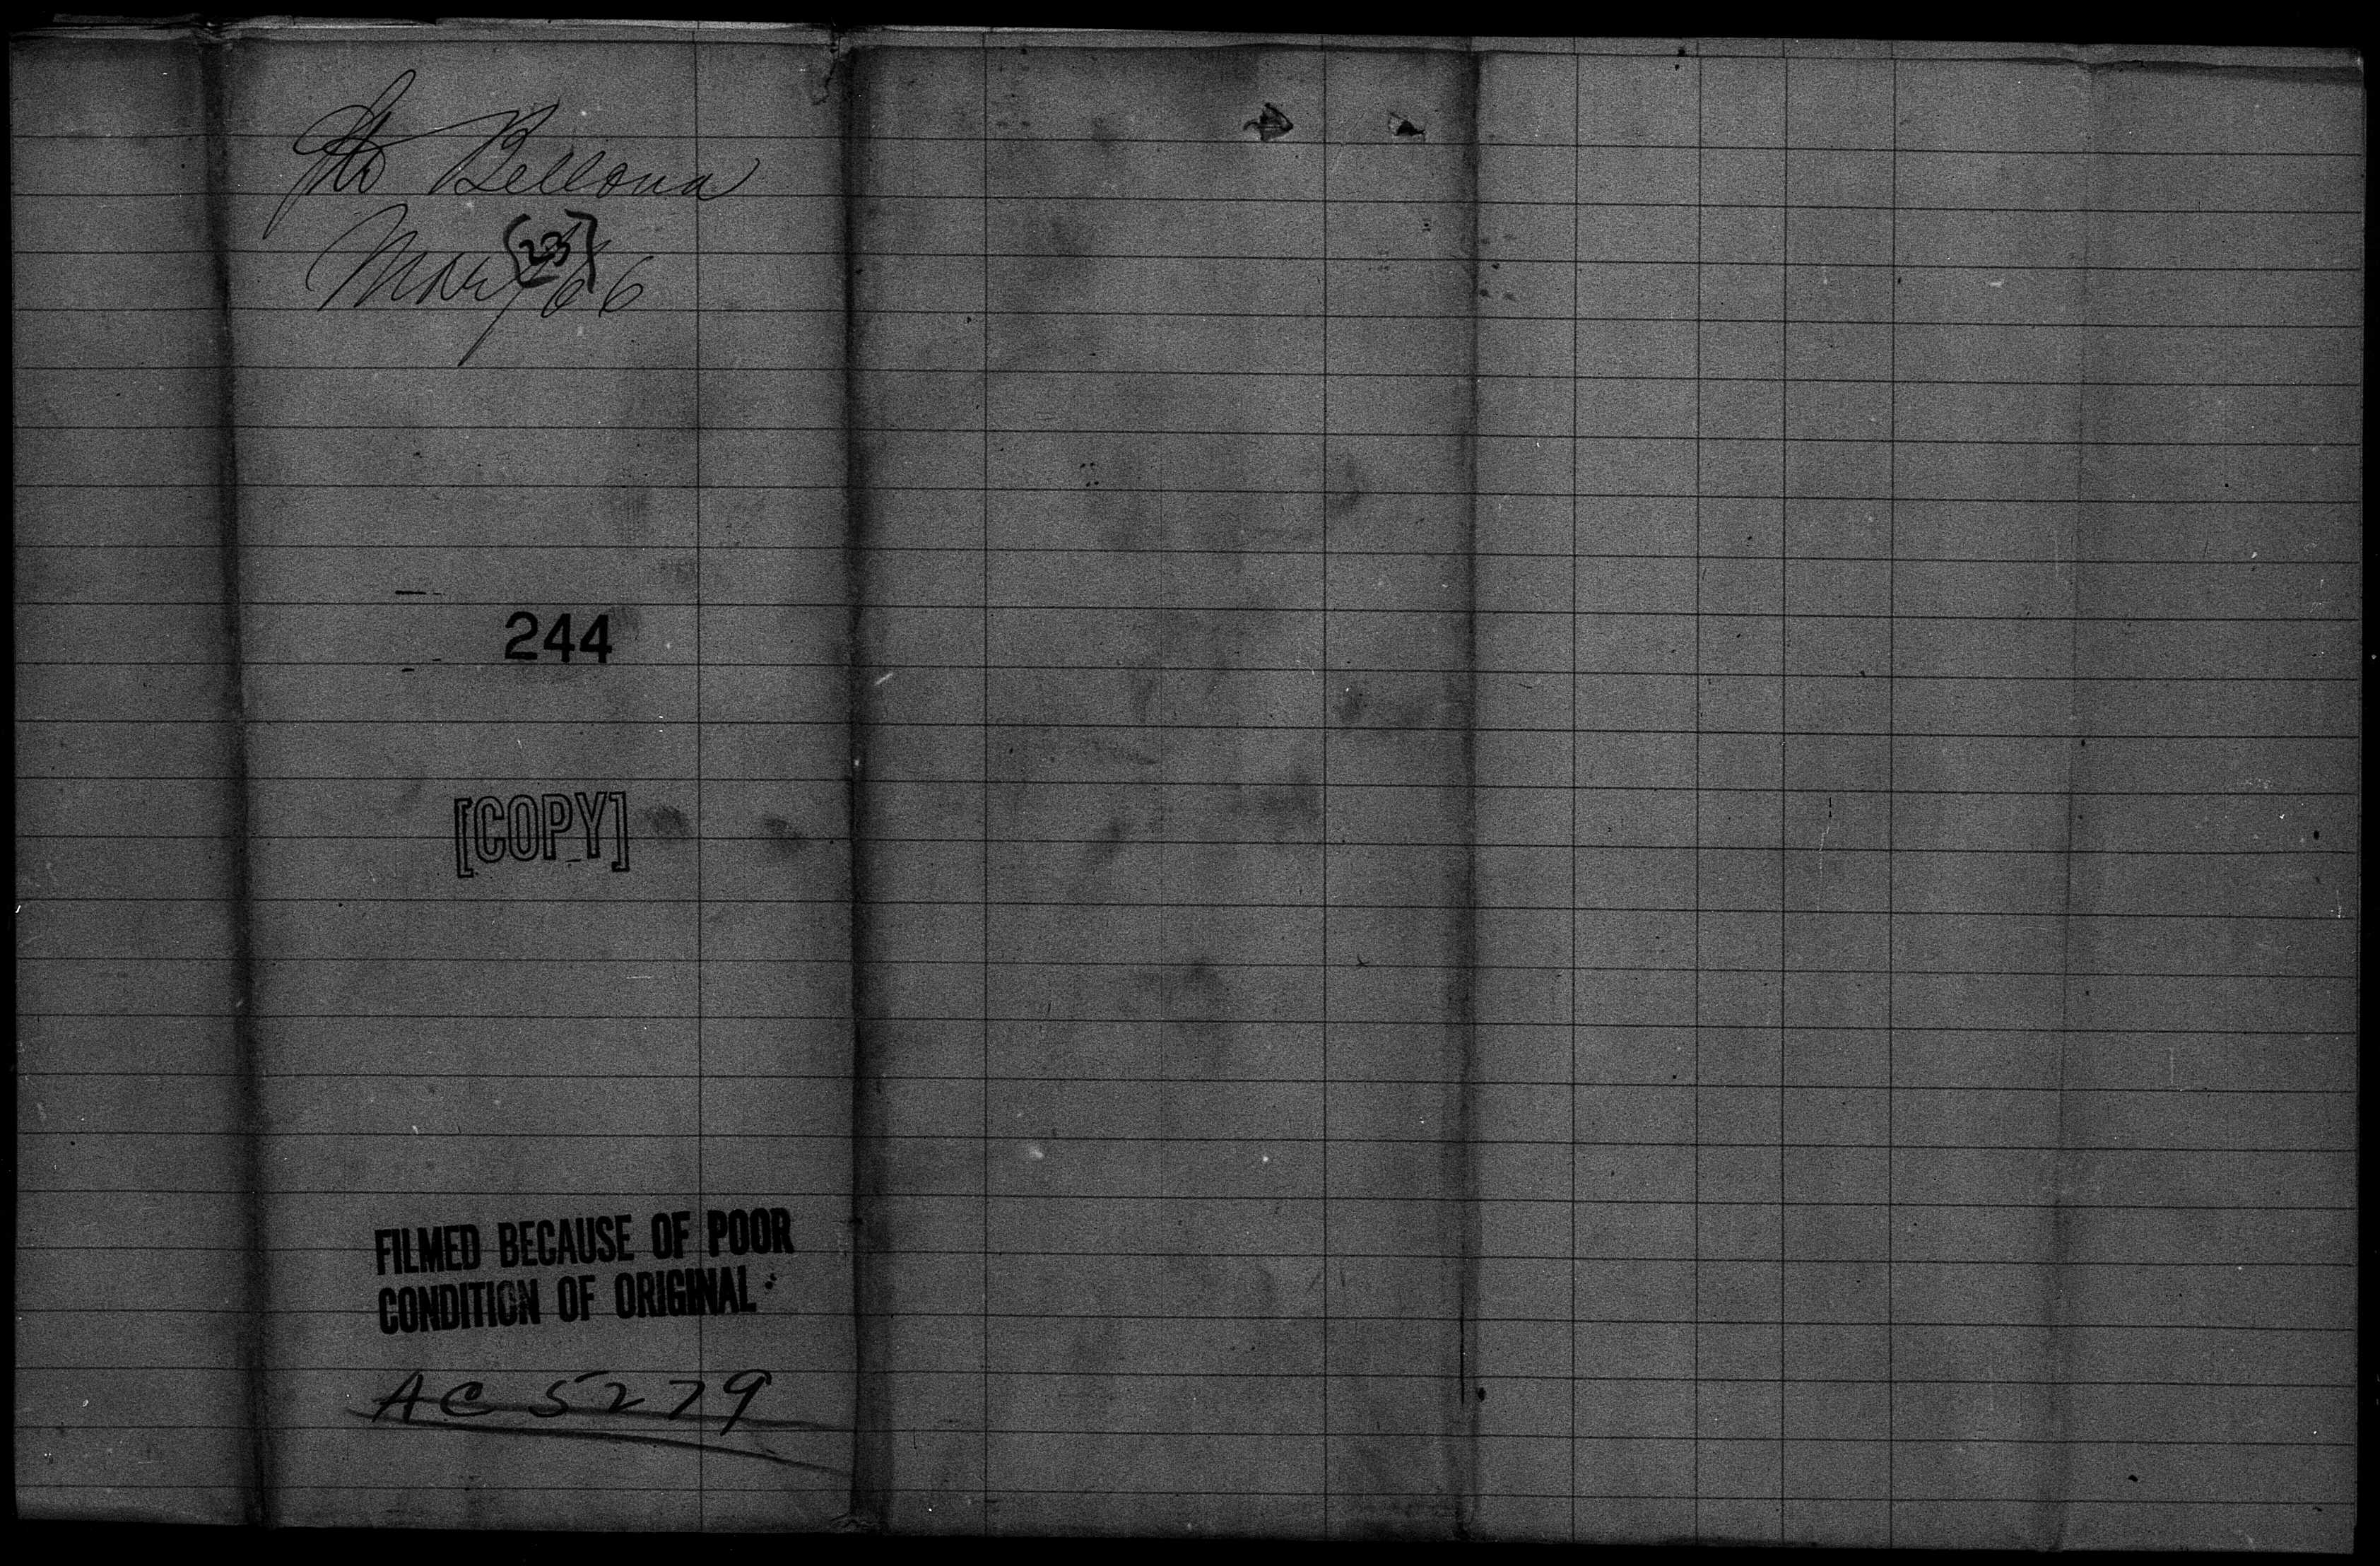 Str Bellona
[23]
Mar/66
244
[COPY]
FILMED BECAUSE OF POOR
CONDITION OF ORIGINAL
AC 5279